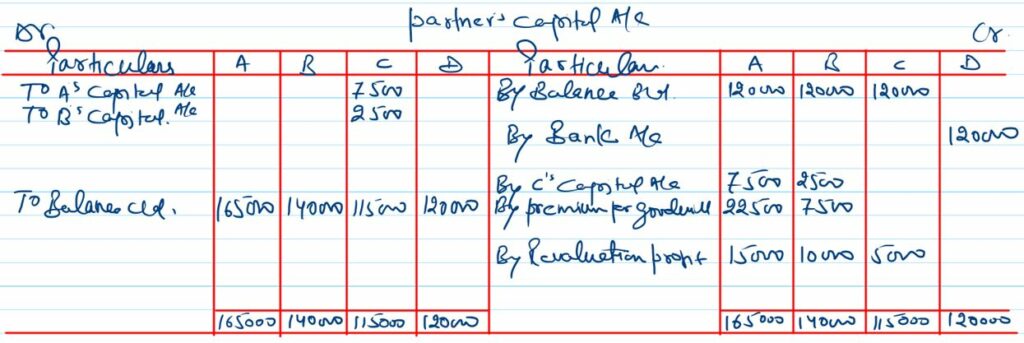 partner's capital A/c
Dr. Cr.
Particulars A B C D Particular. A B C D
To A's Capital A/c 7500 By Balance b/d. 120000 120000 120000
To B's Capital. A/c 2500
By Bank A/c 120000
By C's Capital A/c 7500 2500
To Balance c/d. 165000 140000 115000 120000 By premium for goodwill 22500 7500
By Revaluation profit 15000 10000 5000
165000 140000 115000 120000 165000 140000 115000 120000